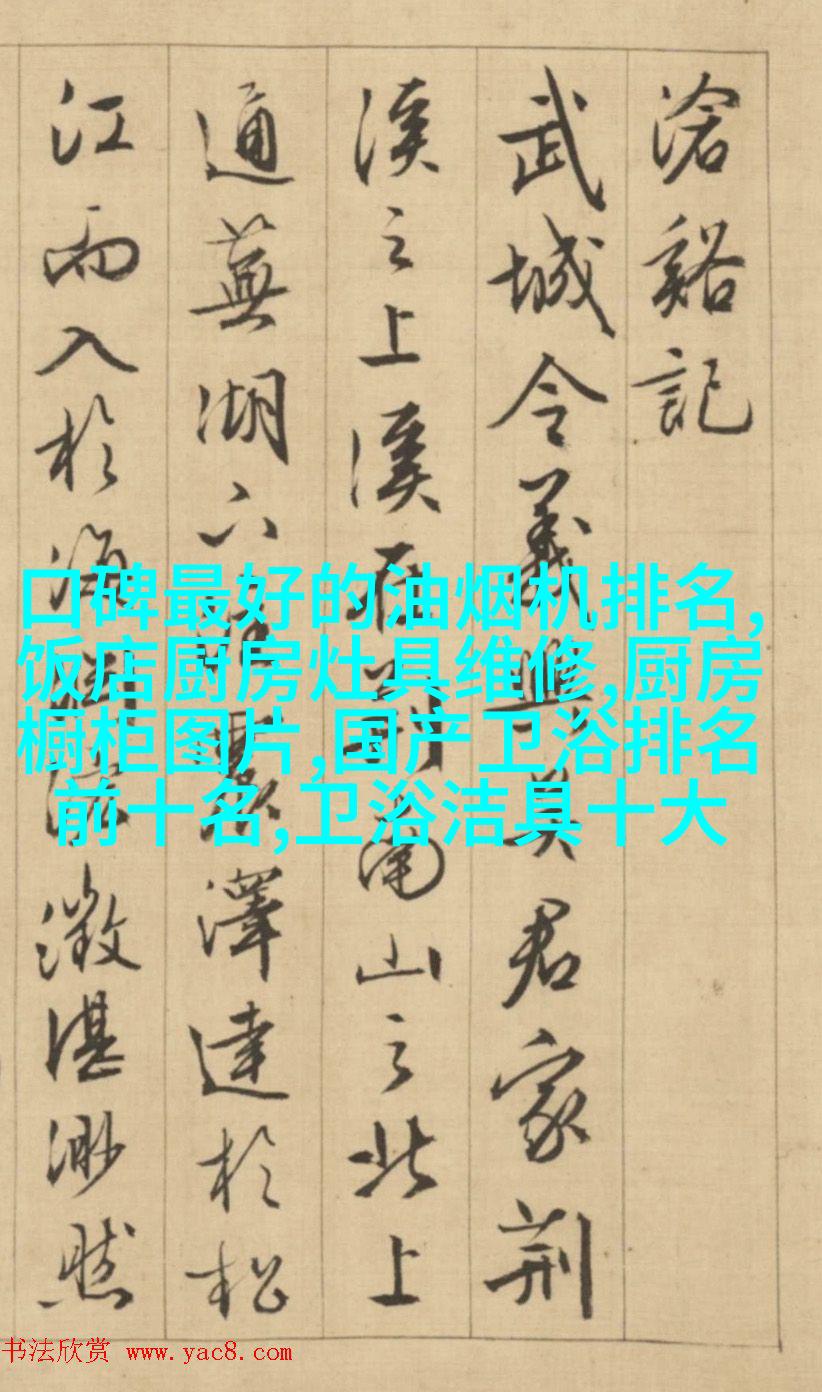 滄谿記
武城令義興吳君家荆
溪之上溪在荆南山之北上
通蕪湖下震澤達於松
江而入於海澂湛渺然
口碑最好的油烟机排名,
饭店厨房灶具维修,厨房
橱柜图片,国产卫浴排名
前十名,卫浴洁具十大
书法欣赏 www.yac8.com